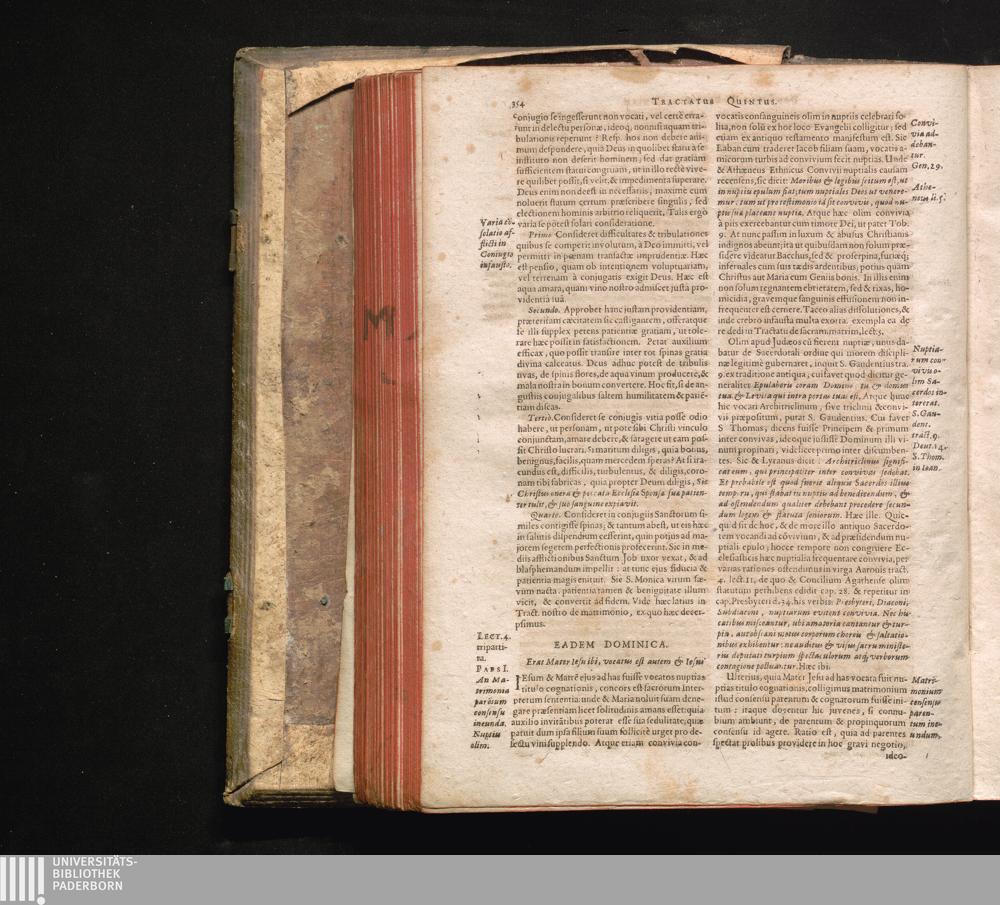 354
TRACTATUS QUINTUS.
conjugio se ingesserunt non vocati, vel certè erra-
runt in delectu personæ, ideoq; non nisi aquam tri-
bulationis reperiunt? Resp. hos non debere ani-
mum despondere, quia Deus in quolibet statu à se
instituto non deserit hominem; sed dat gratiam
sufficientem statui congruam, ut in illo rectè vive-
re quilibet possit, si velit, & impedimenta superare.
Deus enim non deest in necessariis, maximè cum
noluerit statum certum præscribere singulis, sed
electionem hominis arbitrio reliquerit. Talis ergò
varia se potest solari consideratione.
Varia cō-
solatio af-
flicti in
Coniugio
infausto.
Primo Consideret difficultates & tribulationes
quibus se comperit involutum, à Deo immitti, vel
permitti in pœnam transactæ imprudentiæ. Hæc
est pensio, quam ob intentionem voluptuariam,
vel terrenam à conjugatis exigit Deus. Hæc est
aqua amara, quam vino nostro admiscet justa pro-
videntia sua.
Secundo. Approbet hanc justam providentiam,
præteritam cæcitatem sic castigantem, offeratque
se illi supplex petens patientiæ gratiam, ut tole-
rare hæc possit in satisfactionem. Petat auxilium
efficax, quo possit transire inter tot spinas gratia
divina calceatus. Deus adhuc potest de tribulis
uvas, de spinis flores, de aqua vinum producere, &
mala nostra in bonum convertere. Hoc fit, si de an-
gustiis conjugalibus saltem humilitatem & patiē-
tiam discas.
Tertiò. Consideret se conjugis vitia posse odio
habere, ut personam, ut pote sibi Christi vinculo
conjunctam, amare debere, & satagere ut eam pos-
sit Christo lucrari. Si maritum diligis, quia bonus,
benignus, facilis, quam mercedem speras? At si ira-
cundus est, difficilis, turbulentus, & diligis, coro-
nam tibi fabricas, quia propter Deum diligis, Sic
Christus onera & peccata Ecclesiæ Sponsæ suæ patien-
ter tulit, & suo sanguine expiavit.
Quarto. Consideret in conjugiis Sanctorum si-
miles contigisse spinas; & tantum abest, ut eis hæc
in salutis dispendium cesserint, quin potius ad ma-
jorem segetem perfectionis profecerint. Sic in me-
diis afflictionibus Sanctum Job uxor vexat, & ad
blasphemandum impellit: at tunc ejus fiducia &
patientia magis enituit. Sic S. Monica virum sæ-
vum nacta, patientia tamen & benignitate illum
vicit, & convertit ad fidem. Vide hæc latius in
Tract. nostro de matrimonio, ex quo hæc decer-
psimus.
EADEM DOMINICA.
LECT. 4.
triparti-
ta.
PARS I.
An Ma-
trimonia
parētum
consensu
ineunda.
Nuptiis
olim.
Erat Mater Iesu ibi, vocatus est autem & Iesus
IEsum & Matrē ejus ad has fuisse vocatos nuptias
titulo cognationis, concors est sacrorum Inter-
pretum sententia. unde & Maria noluit suam dene-
gare præsentiam licet solitudinis amans esset: quia
auxilio invitātibus poterat esse sua sedulitate, quæ
patuit dum ipsa filium suum sollicitè urget pro de-
fectu vini supplendo. Atque etiam convivia con-
vocatis consanguineis olim in nuptiis celebrari so-
lita, non solū ex hoc loco Evangelii colligitur; sed
etiam ex antiquo testamento manifestum est. Sic
Laban cum traderet Jacob filiam suam, vocatis a-
micorum turbis ad convivium fecit nuptias. Unde
& Athæneus Ethnicus Convivii nuptialis causam
recensens, sic dicit: Moribus & legibus scitum est, ut
in nuptiis epulum fiat; tum nuptiales Deos ut venere-
mur: tum ut pro testimonio id sit convivis, quod nu-
ptiæ suæ placeant nuptiæ. Atque hæc olim convivia
à piis exercebantur cum timore Dei, ut patet Tob.
9. At nunc passim in luxum & abusus Christianis
indignos abeunt; ita ut quibusdam non solum præ-
sidere videatur Bacchus, sed & proserpina, furiæq;
infernales cum suis tædis ardentibus, potius quam
Christus aut Maria cum Geniis bonis. In illis enim
non solum regnantem ebrietatem, sed & rixas, ho-
micidia, gravemque sanguinis effusionem non in-
frequenter est cernere. Taceo alias dissolutiones, &
inde crebro infausta multa exorta. exempla ea de
re dedi in Tractatu de sacram. matrim. lect. 3.
Convi-
via ad-
deban-
tur.
Gen. 29.
Athe-
neus li. 5.
Olim apud Judæos cū fierent nuptiæ, unus da-
batur de Sacerdotali ordine qui morem discipli-
næ legitimè gubernaret, inquit S. Gaudentius tra.
9. ex traditione antiqua, cui favet quod dicitur ge-
neraliter Epulaberis coram Domino, tu & domus
tua, & Levita qui intra portas tuas est. Atque hunc
hic vocari Architriclinum, sive triclinii & convi-
vii præpositum, putat S. Gaudentius. Cui favet
S Thomas, dicens fuisse Principem & primum
inter convivas, ideoque jussisse Dominum illi vi-
num propinari, videlicet primo inter discumben-
tes. Sic & Lyranus dicit: Architriclinus signifi-
cat eum, qui principaliter inter convivas sedebat.
Et probabile est quod fuerit aliquis Sacerdos illius
temporis, qui stabat in nuptiis ad benedicendum, &
ad ostendendum qualiter debebant procedere secun-
dum legem & statuta seniorum. Hæc ille. Quic-
quid sit de hoc, & de more illo antiquo Sacerdo-
tem vocandi ad cōvivium, & ad præsidendum nu-
ptiali epulo; hocce tempore non congruere Ec-
clesiasticis hæc nuptialia frequentare convivia, per
varias rationes ostendimus in virga Aaronis tract.
4. lect. 11, de quo & Concilium Agathense olim
statutum perhibens edidit cap. 28. & repetitur in
cap. Presbyteri d. 34. his verbis: Presbyteri, Diaconi,
Subdiaconi, nuptiarum evitent convivia. Nec his
cœtibus misceantur, ubi amatoria cantantur & tur-
pia, aut obscœni motus corporum choris & saltatio-
nibus exhibentur: ne auditus & visus sacris ministe-
riis deputati turpium spectaculorum atq; verborum
contagione polluantur. Hæc ibi.
Nuptia-
rum con-
viviis o-
lim Sa-
cerdos in-
tererat.
S. Gau-
dent.
tract. 9.
Deut. 14.
S. Thom.
in Ioan.
Ulterius, quia Mater Jesu ad has vocata fuit nu-
ptias titulo cognationis, colligimus matrimonium
istud consensu parentum & cognatorum fuisse ini-
tum: itaque docentur hic juvenes, si connu-
bium ambiunt, de parentum & propinquorum
consensu id agere. Ratio est, quia ad parentes
spectat prolibus providere in hoc gravi negotio,
Matri-
monium
consensu
paren-
tum ine-
undum.
ideo-
M.
UNIVERSITÄTS-
BIBLIOTHEK
PADERBORN